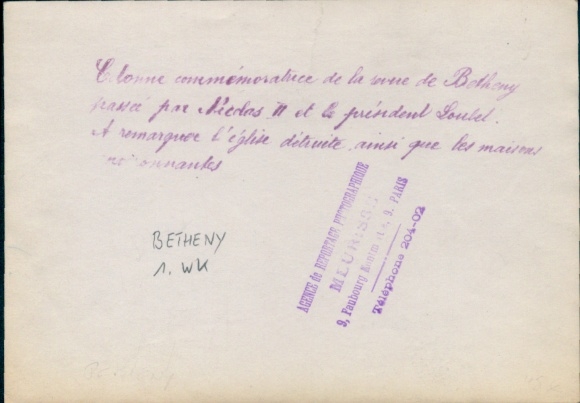 Colonne commémoratrice de la revue de Betheny
passée par Nicolas II et le président Loubet.
A remarquer l'église détruite ainsi que les maisons
BETHENY
1. WK
AGENCE de REPORTAGE PHOTOGRAPHIQUE
MEURISSE
9, Faubourg Montmartre, 9. PARIS
Téléphone 204-02